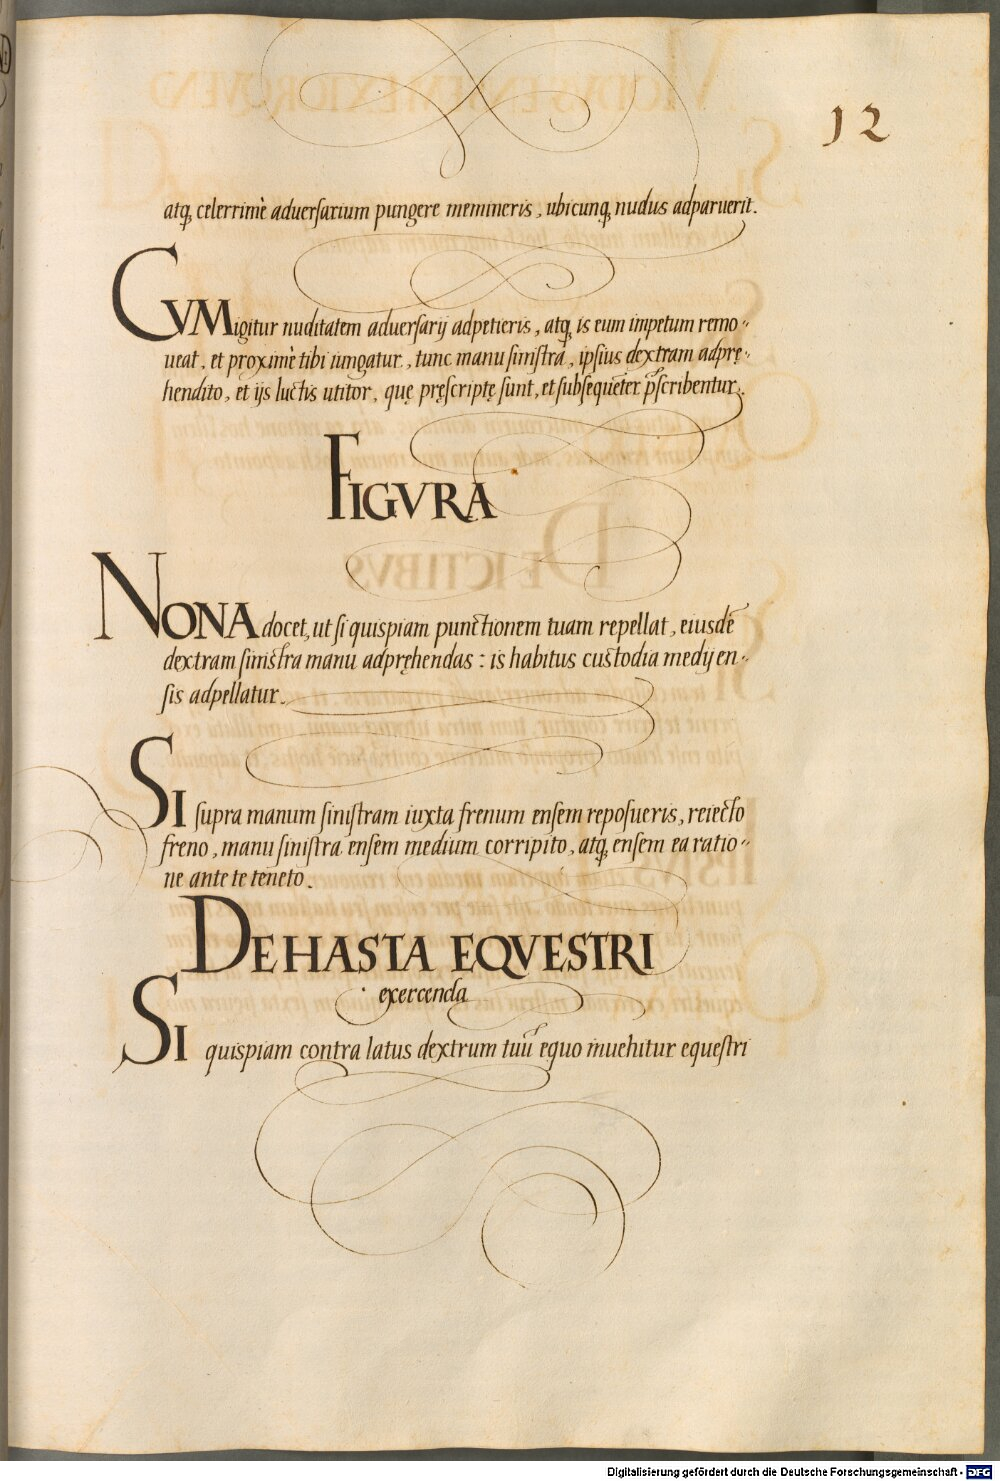 12
atq, celerrimè adversarium pungere memineris, ubicunq, nudus adparuerit.
CVM igitur nuditatem adversarij adpetieris, atq, is eum impetum remo-
ueat, et proximè tibi iungatur, tunc manu sinistra, ipsius dextram adprę-
hendito, et ijs luctis utitor, quę pręscriptę sunt, et subsequeter pscribentur.
FIGVRA
NONA docet, ut si quispiam punctionem tuam repellat, eiusdē
dextram sinistra manu adpręhendas: is habitus custodia medij en-
sis adpellatur.
SI supra manum sinistram iuxta frenum ensem reposueris, reiecto
freno, manu sinistra ensem medium corripito, atq, ensem ea ratio-
ne ante te teneto.
DE HASTA EQVESTRI
exercenda
SI quispiam contra latus dextrum tuū equo inuehitur equestri
Digitalisierung gefördert durch die Deutsche Forschungsgemeinschaft - DFG